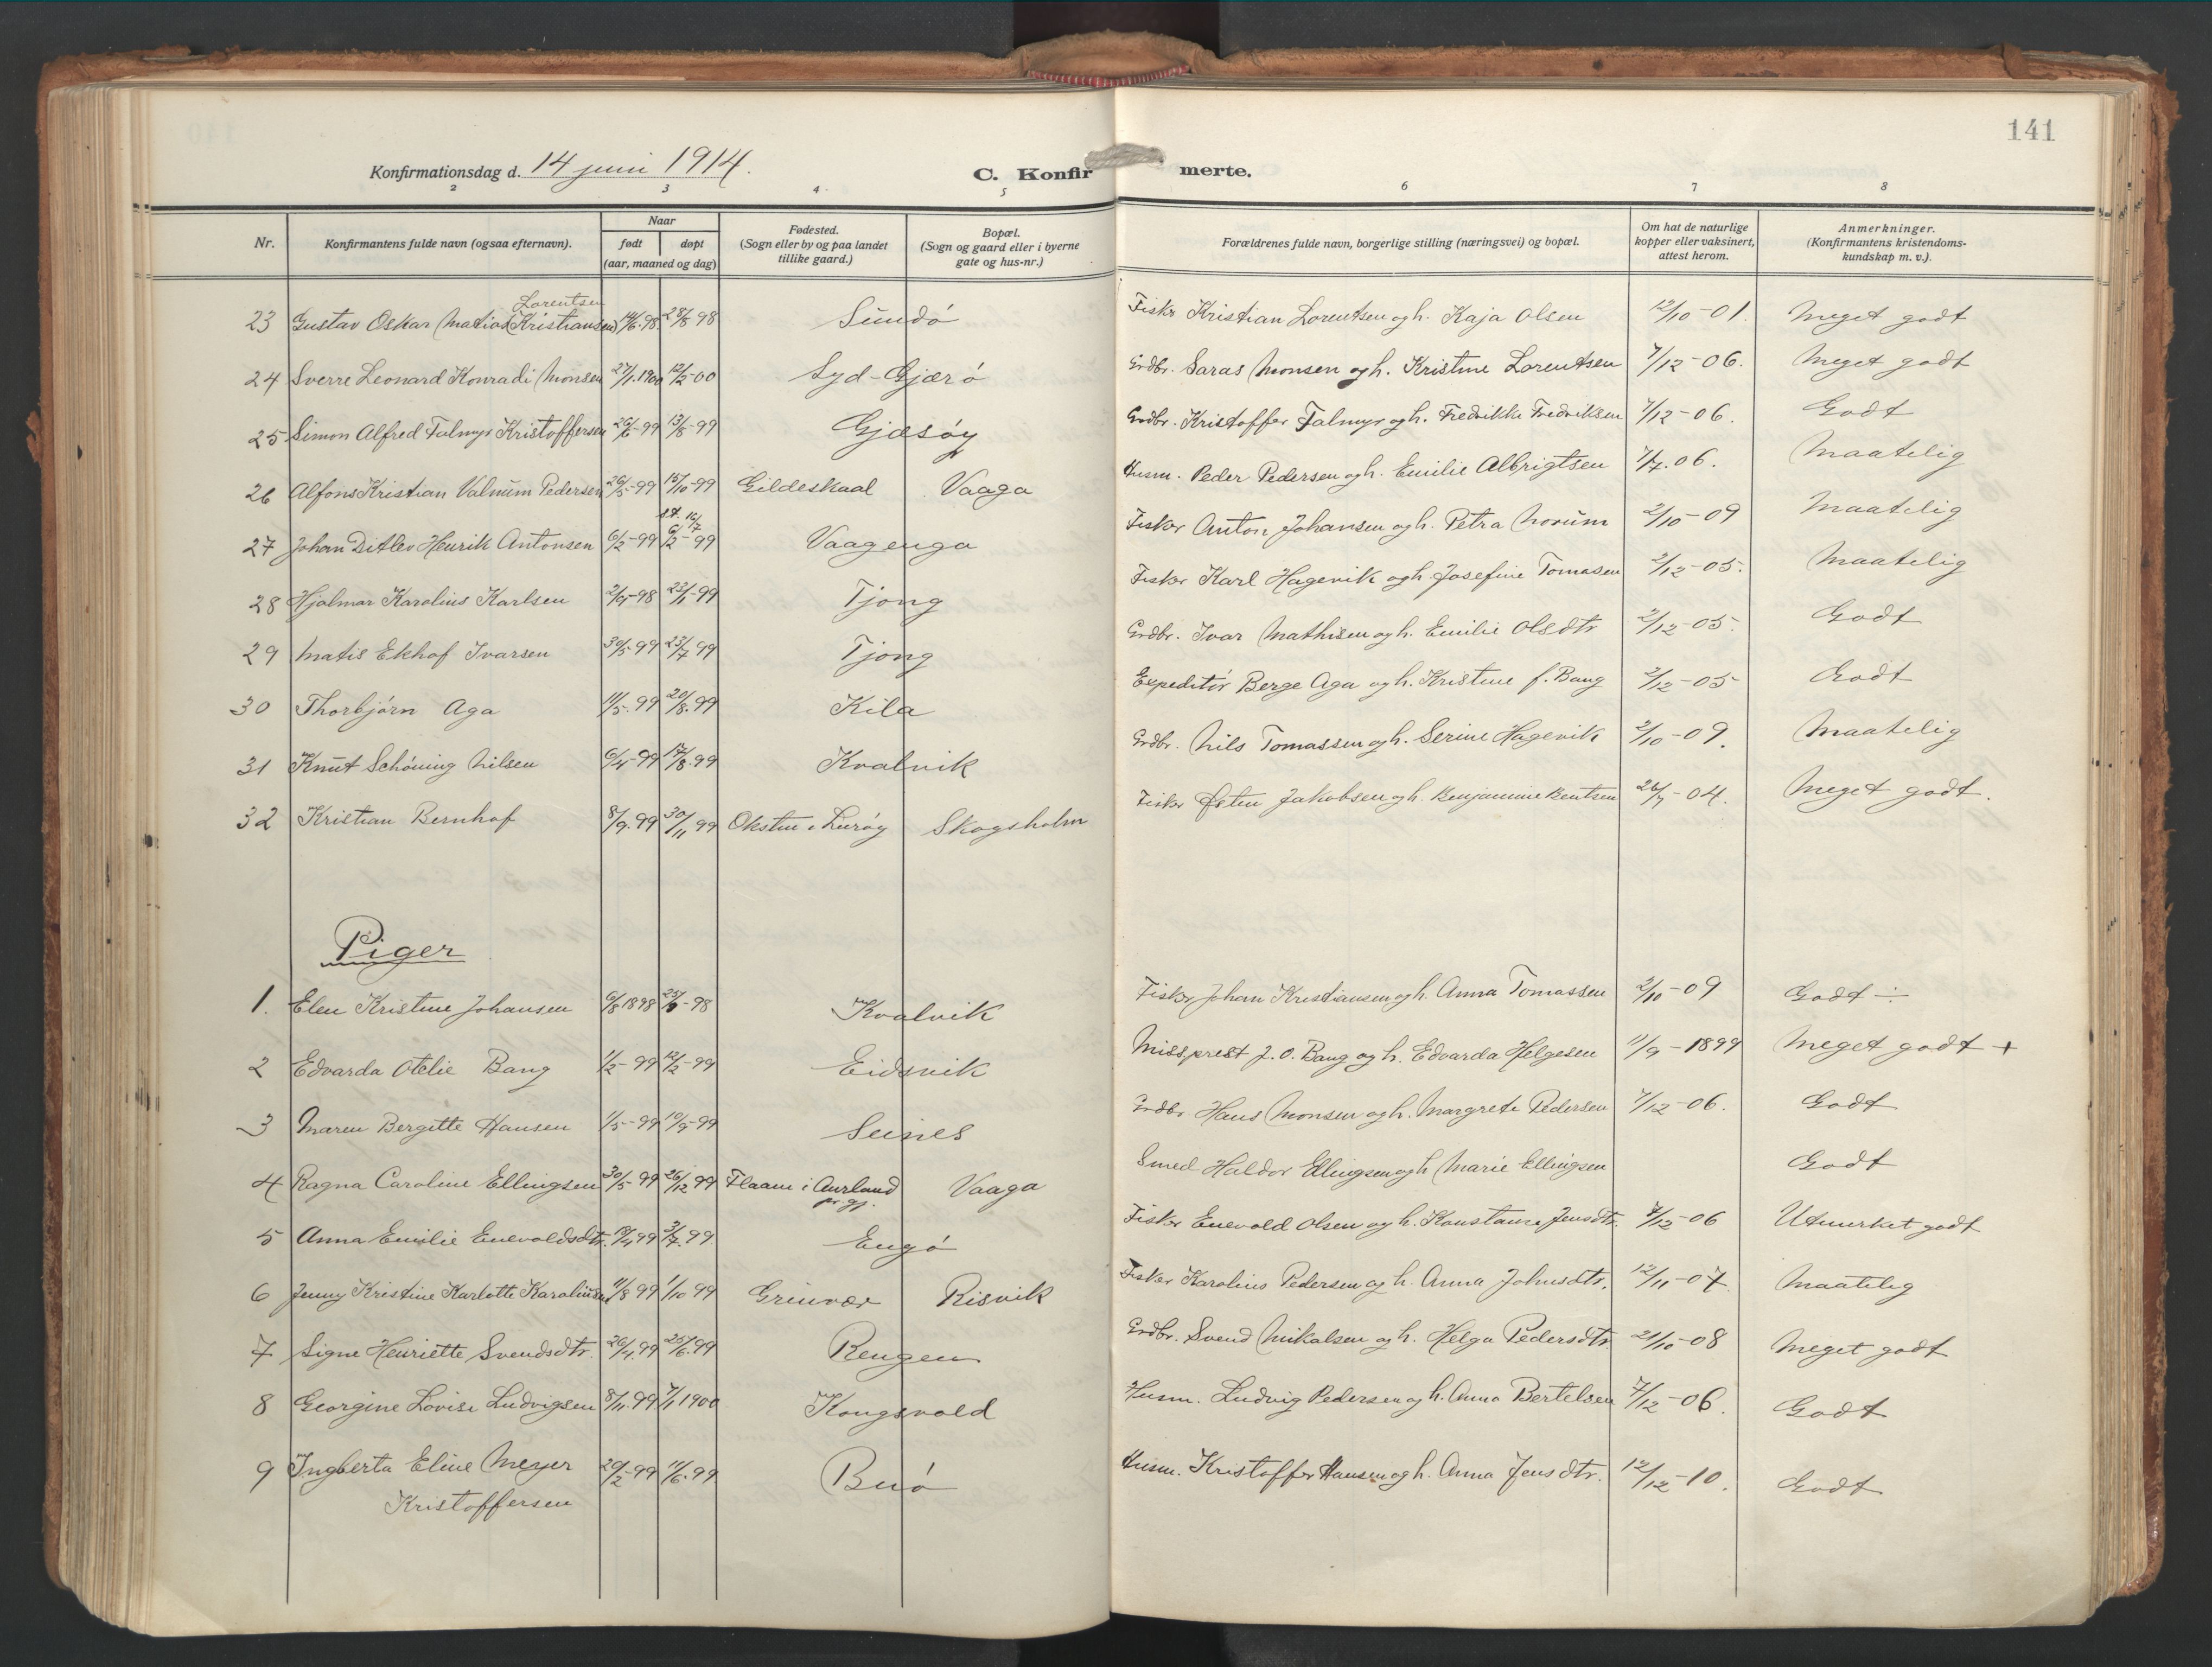 141
Konfirmationsdag d. 14 juni 1914.
C. Konfirmerte.
2 3 4 5 6 7 8
Nr.
Konfirmantens fulde navn (ogsaa efternavn).
Naar
født døpt
(aar, maaned og dag)
Fødested.
(Sogn eller by og paa landet
tillike gaard.)
Bopæl.
(Sogn og gaard eller i byerne
gate og hus-nr.)
Forældrenes fulde navn, borgerlige stilling (næringsvei) og bopæl.
Om hat de naturlige
kopper eller vaksinert,
attest herom.
Anmerkninger.
(Konfirmantens kristendoms-
kundskap m. v.).
Lorentsen
23 Gustav Oskar Matias (Kristiansen) 14/6.98 28/8 98 Sundö Fisker Kristian Lorentsen og h. Kaja Olsen 12/10-01. Meget godt
24 Sverre Leonard Konradi Monsen 27/1.1900 12/2-00 Syd-Gjærö Grdbr. Saras Monsen og h. Kristine Lorentsen 7/12-06. Meget godt
25 Simon Alfred Falmyr Kristoffersen 26/6-99 13/8-99 Gjæsöy Grdbr. Kristoffer Falmyr og h. Fredrikke Fredriksen 7/12-06. Godt
26 Alfons Kristian Valnum Pedersen 26/5-99 15/10-99 Gildeskaal Vaaga Husm. Peder Pedersen og h. Emilie Albrigtsen 7/7.06. Maatelig
st. 16/7
27 Johan Ditlev Henrik Antonsen 6/2-99 6/2-99 Vaagenga Fisker Anton Johansen og h. Petra Norum 2/10-09 Maatelig
28 Hjalmar Karolius Karlsen 2/9-98 22/1-99 Tjong Fisker Karl Hagevik og h. Josefine Tomasen 2/12-05. Maatelig
29 Matis Ekhof Ivarsen 30/5-99 23/7 99 Tjong Grdbr. Ivar Mathisen og h. Emilie Olsdtr 2/12-05. Godt
30 Thorbjörn Aga 11/5.99 20/8.99 Kila Expeditör Berge Aga og h. Kristine f. Bang 2/12-05 Godt
31 Knut Schöning Nilsen 6/4-99 17/8.99 Kvalvik Grdbr. Nils Tomassen og h. Serine Hagevik 2/10-09. Maatelig
32 Kristian Bernhof 8/9.99 30/11 99 i Luröy Skogsholm Fisker Østen Jakobsen og h. Benjamine Bentsen 26/7-04. Meget godt.
Piger
1. Elen Kristine Johansen 6/8 1898 25/9-98 Kvalvik Fisker Johan Kristiansen og h. Anna Tomassen 2/10-09 Godt ÷
2 Edvarda Otelie Bang 1/2-99 12/2-99 Eidsvik Missprest J. O. Bang og h. Edvarda Helgesen 11/9-1899 Meget godt +
3 Maren Bergitte Hansen 1/5-99 10/9-99 Seines Grdbr Hans Monsen og h. Margrete Pedersen 7/12-06. Godt
4 Ragna Caroline Ellingsen 30/5-99 26/12 99 Flaam i Aurland pr.gj. Vaaga Smed Haldor Ellingsen og h Marie Ellingsen Godt
5 Anna Emilie Enevoldsdtr. 19/4 99 3/7.99 Engö Fisker Enevold Olsen og h. Konstanse Jensdtr. 7/12-06 Utmerket godt
6 Jenny Kristine Karlotte Karoliusen 11/8 99 1/10 99 Grinvær Risvik Fisker Karolius Pedersen og h. Anna Johnsdtr. 12/11-07 Maatelig
7 Signe Henriette Svendsdtr. 26/4.99 25/6.99 Rengen Grdbr. Svend Mikalsen og h. Helga Pedersdtr. 21/10-08 Meget godt
8 Georgine Lovise Ludvigsen 8/11.99 7/1 1900 Kongsvold Husm. Ludvig Pedersen og h. Anna Bertelsen 7/12-06. Godt
9 Ingberta Eline Meyer 20/2-99 11/6.99 Buö Husm. Kristoffer Hansen og h. Anna Jensdtr. 12/12-10. Godt
Kristoffersen